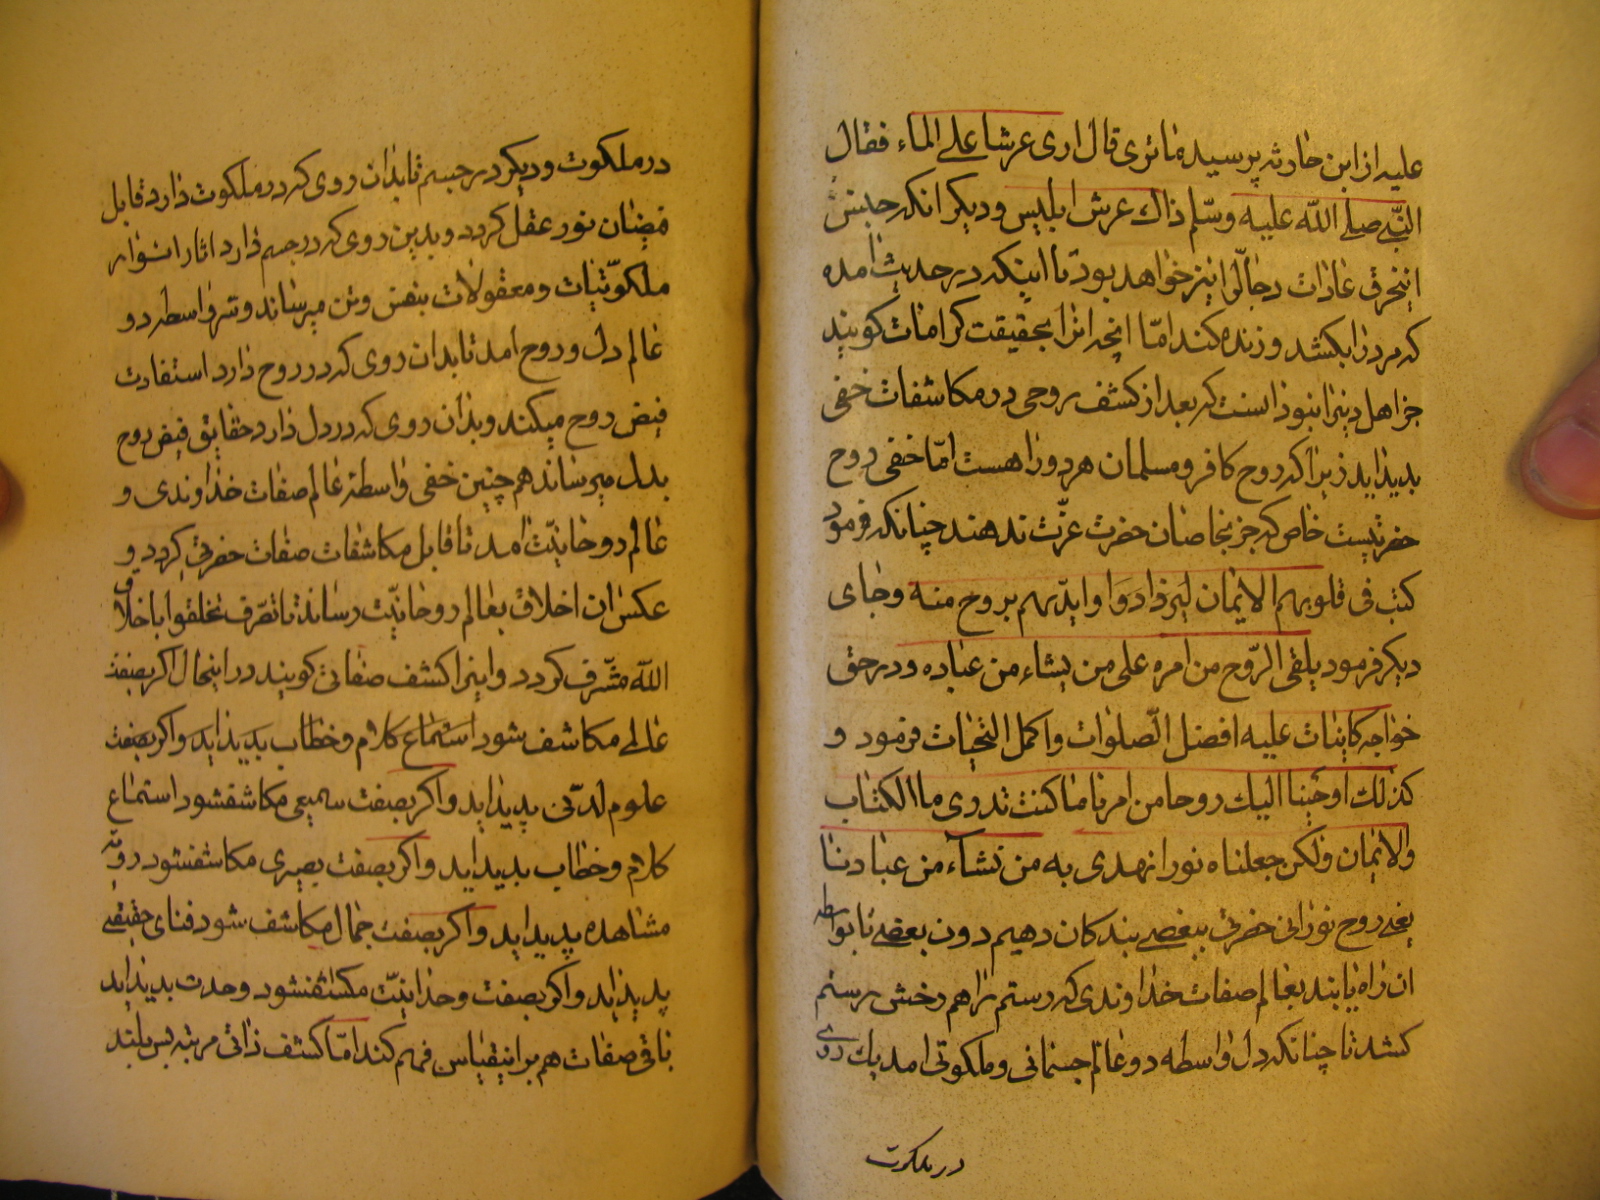 علیه از ابن حارثه پرسید ما تری قال اری عرشا علی الماء فقال
النبی صلی الله علیه وسلم ذاک عرش ابلیس ودیکر انکه جنس
اینخرق عادات دجال را نیز خواهد بود تا اینکه در حدیث امده
که مرد را بکشد و زنده کند امّا انچه انرا بحقیقت کرامات کویند
جز اهل دین را نبود انست که بعد از کشف روحی در مکاشفات خفی
بدید اید زیرا که روح کافر و مسلمان هر دو را هست امّا خفی روح
حضرتیست خاص که جز بخاصان حضرت عزّت ندهند چنانکه فرمود
کتب فی قلوبهم الایمان وایدّهم بروح منه وجای
دیکر فرمود یلقی الرّوح من امره علی من یشاء من عباده ودر حق
خواجه کاینات علیه افضل الصّلوات واکمل التحیات فرمود و
کذلک اوحینا الیک روحا من امرنا ما کنت تدری ما الکتاب
ولا الایمان ولکن جعلناه نورا نهدی به من نشآء من عبادنا
یعنی روح نورانی حضرتی ببعضی بندکان دهیم دون بعضی تا بواسطه
ان راه یابند بعالم صفات خداوندی که رستم را هم رخش رستم
کشد تا چنانکه دل واسطه دو عالم جسمانی وملکوتی امد یک روی
در ملکوت
در ملکوت ودیکر در جسم تا بدان روی که در ملکوت دارد قابل
فیضان نور عقل کردد وبدین روی که در جسم دارد اثار انوار
ملکوتیات ومعقولات بنفس وتن میرساند وسر واسطه دو
عالم دل وروح امد تا بدان روی که در روح دارد استفادت
فیض روح میکند وبدان روی که در دل دارد حقایق فیض روح
بدل میرساند همچنین خفی واسطهٔ عالم صفات خداوندی و
عالم روحانیّت امد تا قابل مکاشفات صفات حضرتی کردد و
عکس ان اخلاق بعالم روحانیّت رساند تا تشرّف تخلقوا باخلاق
الله مشرّف کردد واینرا کشف صفاتی کویند در اینحال اکر بصفت
عالمی مکاشف شود استماع کلام وخطاب بدید اید واکر بصفت
علوم لدنّی پدید اید واکر بصفت سمیعی مکاشف شود استماع
کلام وخطاب بدید اید واکر بصفت بصیری مکاشف شود رویه
مشاهده پدید اید واکر بصفت جمال مکاشف شود فنای حقیقی
پدید اید واکر بصفت وحدانیّت مکاشف شود وحدت بدید اید
باقی صفات هم بر اینقیاس فهم کند امّا کشف ذاتی مرتبه بس بلند